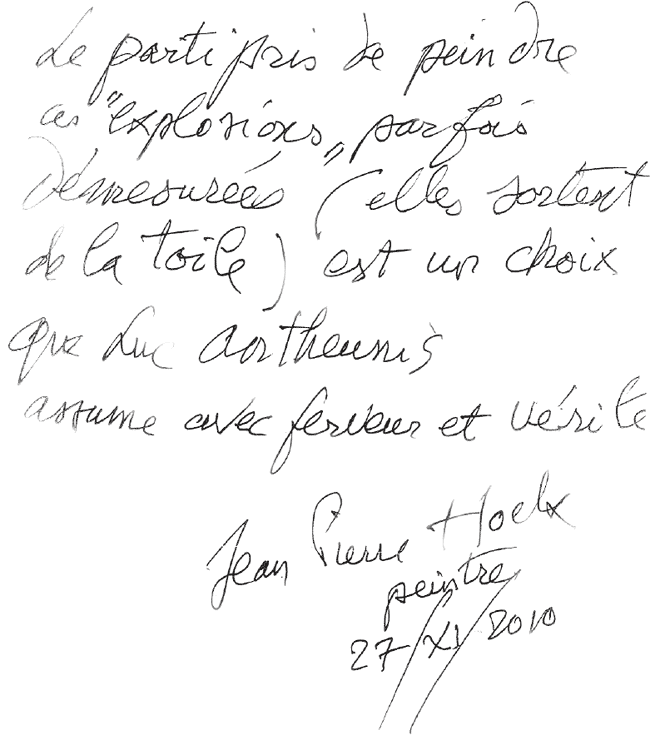 Le parti pris de peindre
ces "explosions" parfois
démesurées (elles sortent
de la toile) est un choix
que Luc Aortheunis
assume avec ferveur et vérité
Jean Pierre Hoelx
peintre
27/XI/2010